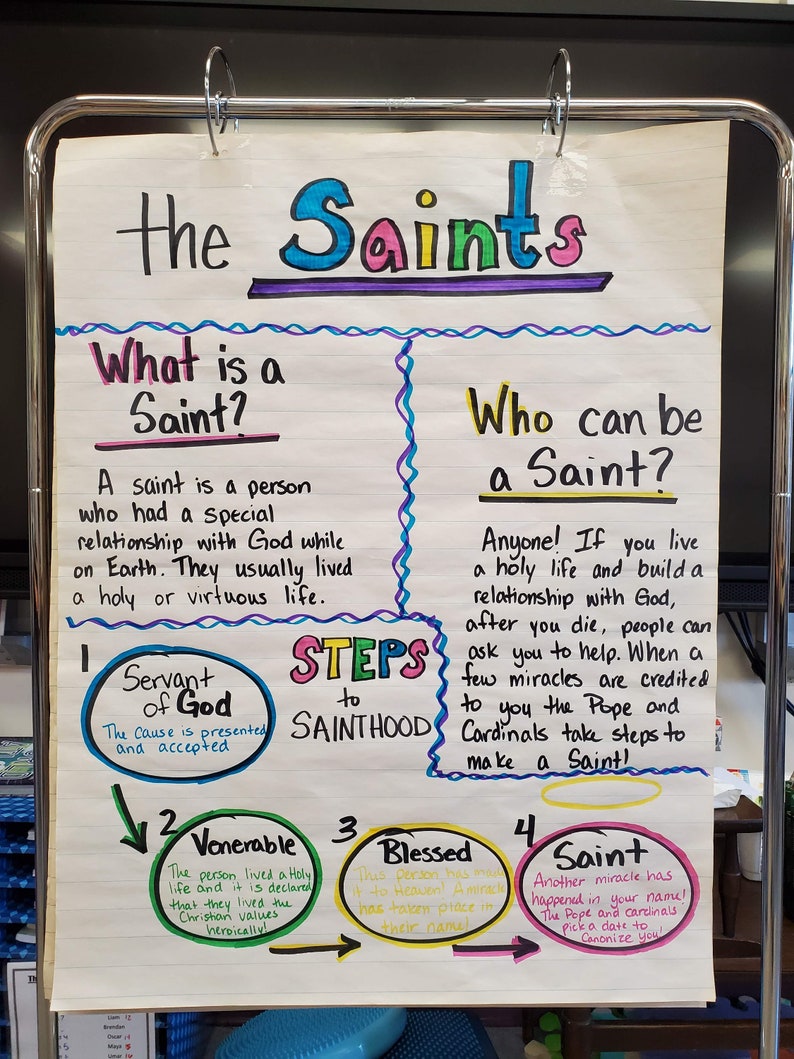 the Saints
What is a
Saint?
A saint is a person
who had a special
relationship with God while
on Earth. They usually lived
a holy or virtuous life.
Who can be
a Saint?
Anyone! If you live
a holy life and build a
relationship with God,
after you die, people can
ask you to help. When a
few miracles are credited
to you the Pope and
Cardinals take steps to
make a Saint!
STEPS
to
SAINTHOOD
1
Servant
of God
The cause is presented
and accepted
2
Venerable
The person lived a Holy
life and it is declared
that they lived the
Christian values
heroically!
3
Blessed
This person has made
it to Heaven! A miracle
has taken place in
their name!
4
Saint
Another miracle has
happened in your name!
The Pope and cardinals
pick a date to
Canonize you!
Liam 12
Brendan
Oscar
Maya
Umar